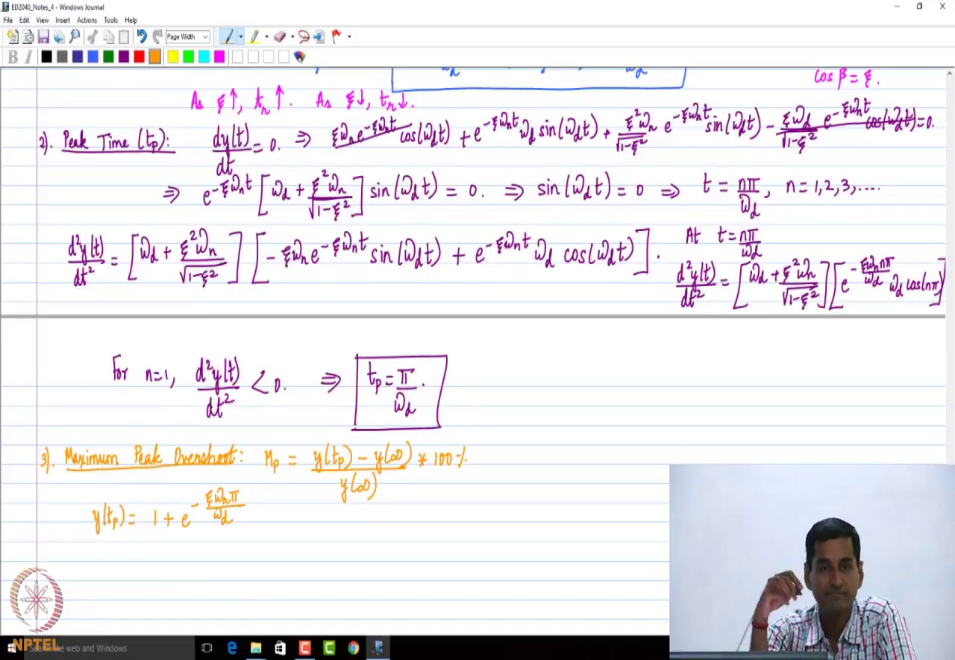 ED2040_Notes_4 - Windows Journal
File Edit View Insert Actions Tools Help
Page Width
B I
ω_d ω_d cos β = ξ.
As ξ↑, t_r↑. As ξ↓, t_r↓.
2). Peak Time (t_p): dy(t)/dt = 0. ⇒ ξω_n e^{-ξω_n t} cos(ω_d t) + e^{-ξω_n t} ω_d sin(ω_d t) + ξ²ω_n/√(1-ξ²) e^{-ξω_n t} sin(ω_d t) - ξω_d/√(1-ξ²) e^{-ξω_n t} cos(ω_d t) = 0.
⇒ e^{-ξω_n t} [ω_d + ξ²ω_n/√(1-ξ²)] sin(ω_d t) = 0. ⇒ sin(ω_d t) = 0 ⇒ t = nπ/ω_d, n = 1, 2, 3, ....
d²y(t)/dt² = [ω_d + ξ²ω_n/√(1-ξ²)] [-ξω_n e^{-ξω_n t} sin(ω_d t) + e^{-ξω_n t} ω_d cos(ω_d t)].
At t = nπ/ω_d
d²y(t)/dt² = [ω_d + ξ²ω_n/√(1-ξ²)] [e^{-ξω_n nπ/ω_d} ω_d cos(nπ)]
For n=1, d²y(t)/dt² < 0. ⇒ t_p = π/ω_d.
3). Maximum Peak Overshoot: M_p = (y(t_p) - y(∞))/y(∞) * 100%
y(t_p) = 1 + e^{-ξω_n π/ω_d}
NPTEL
the web and Windows